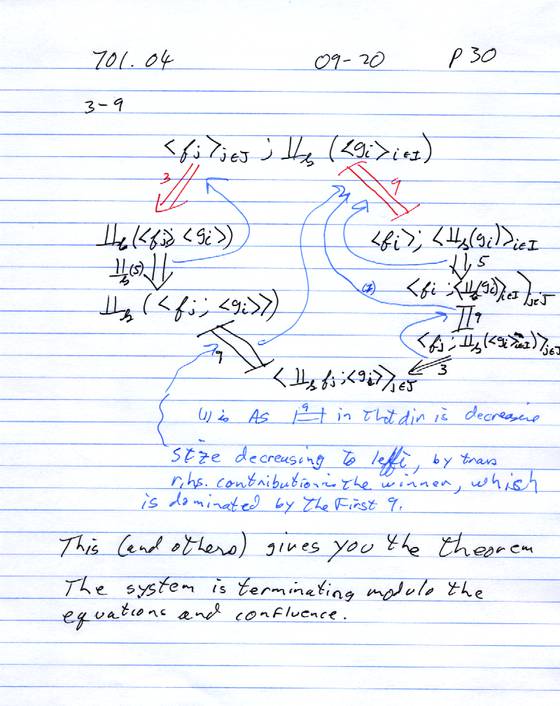 701.04 09-20 P 30
3-9
<fj>j∈J ; ∐b (<gi>i∈I)
3 9
∐b(<fj> <gi>) <fi>; <∐b(gi)>i∈I
∐b(5) 5
∐b (<fj; <gi>>) <fi; <∐b(gi)>i∈I>j∈J
(1) 9
<fj; ∐b(<gi>i∈I)>j∈J
9 3
<∐b fj; <gi>>j∈J
(1) is As 9 in that dir is decreasing
size decreasing to left, by trans
r.h.s. contribution is the winner, which
is dominated by the First 9.
This (and others) gives you the theorem
The system is terminating modulo the
equations and confluence.